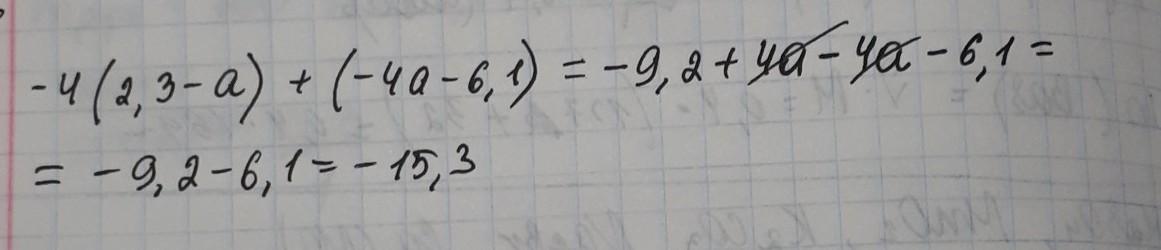 -4(2,3-a)+(-4a-6,1)=-9,2+4a-4a-6,1=
=-9,2-6,1=-15,3